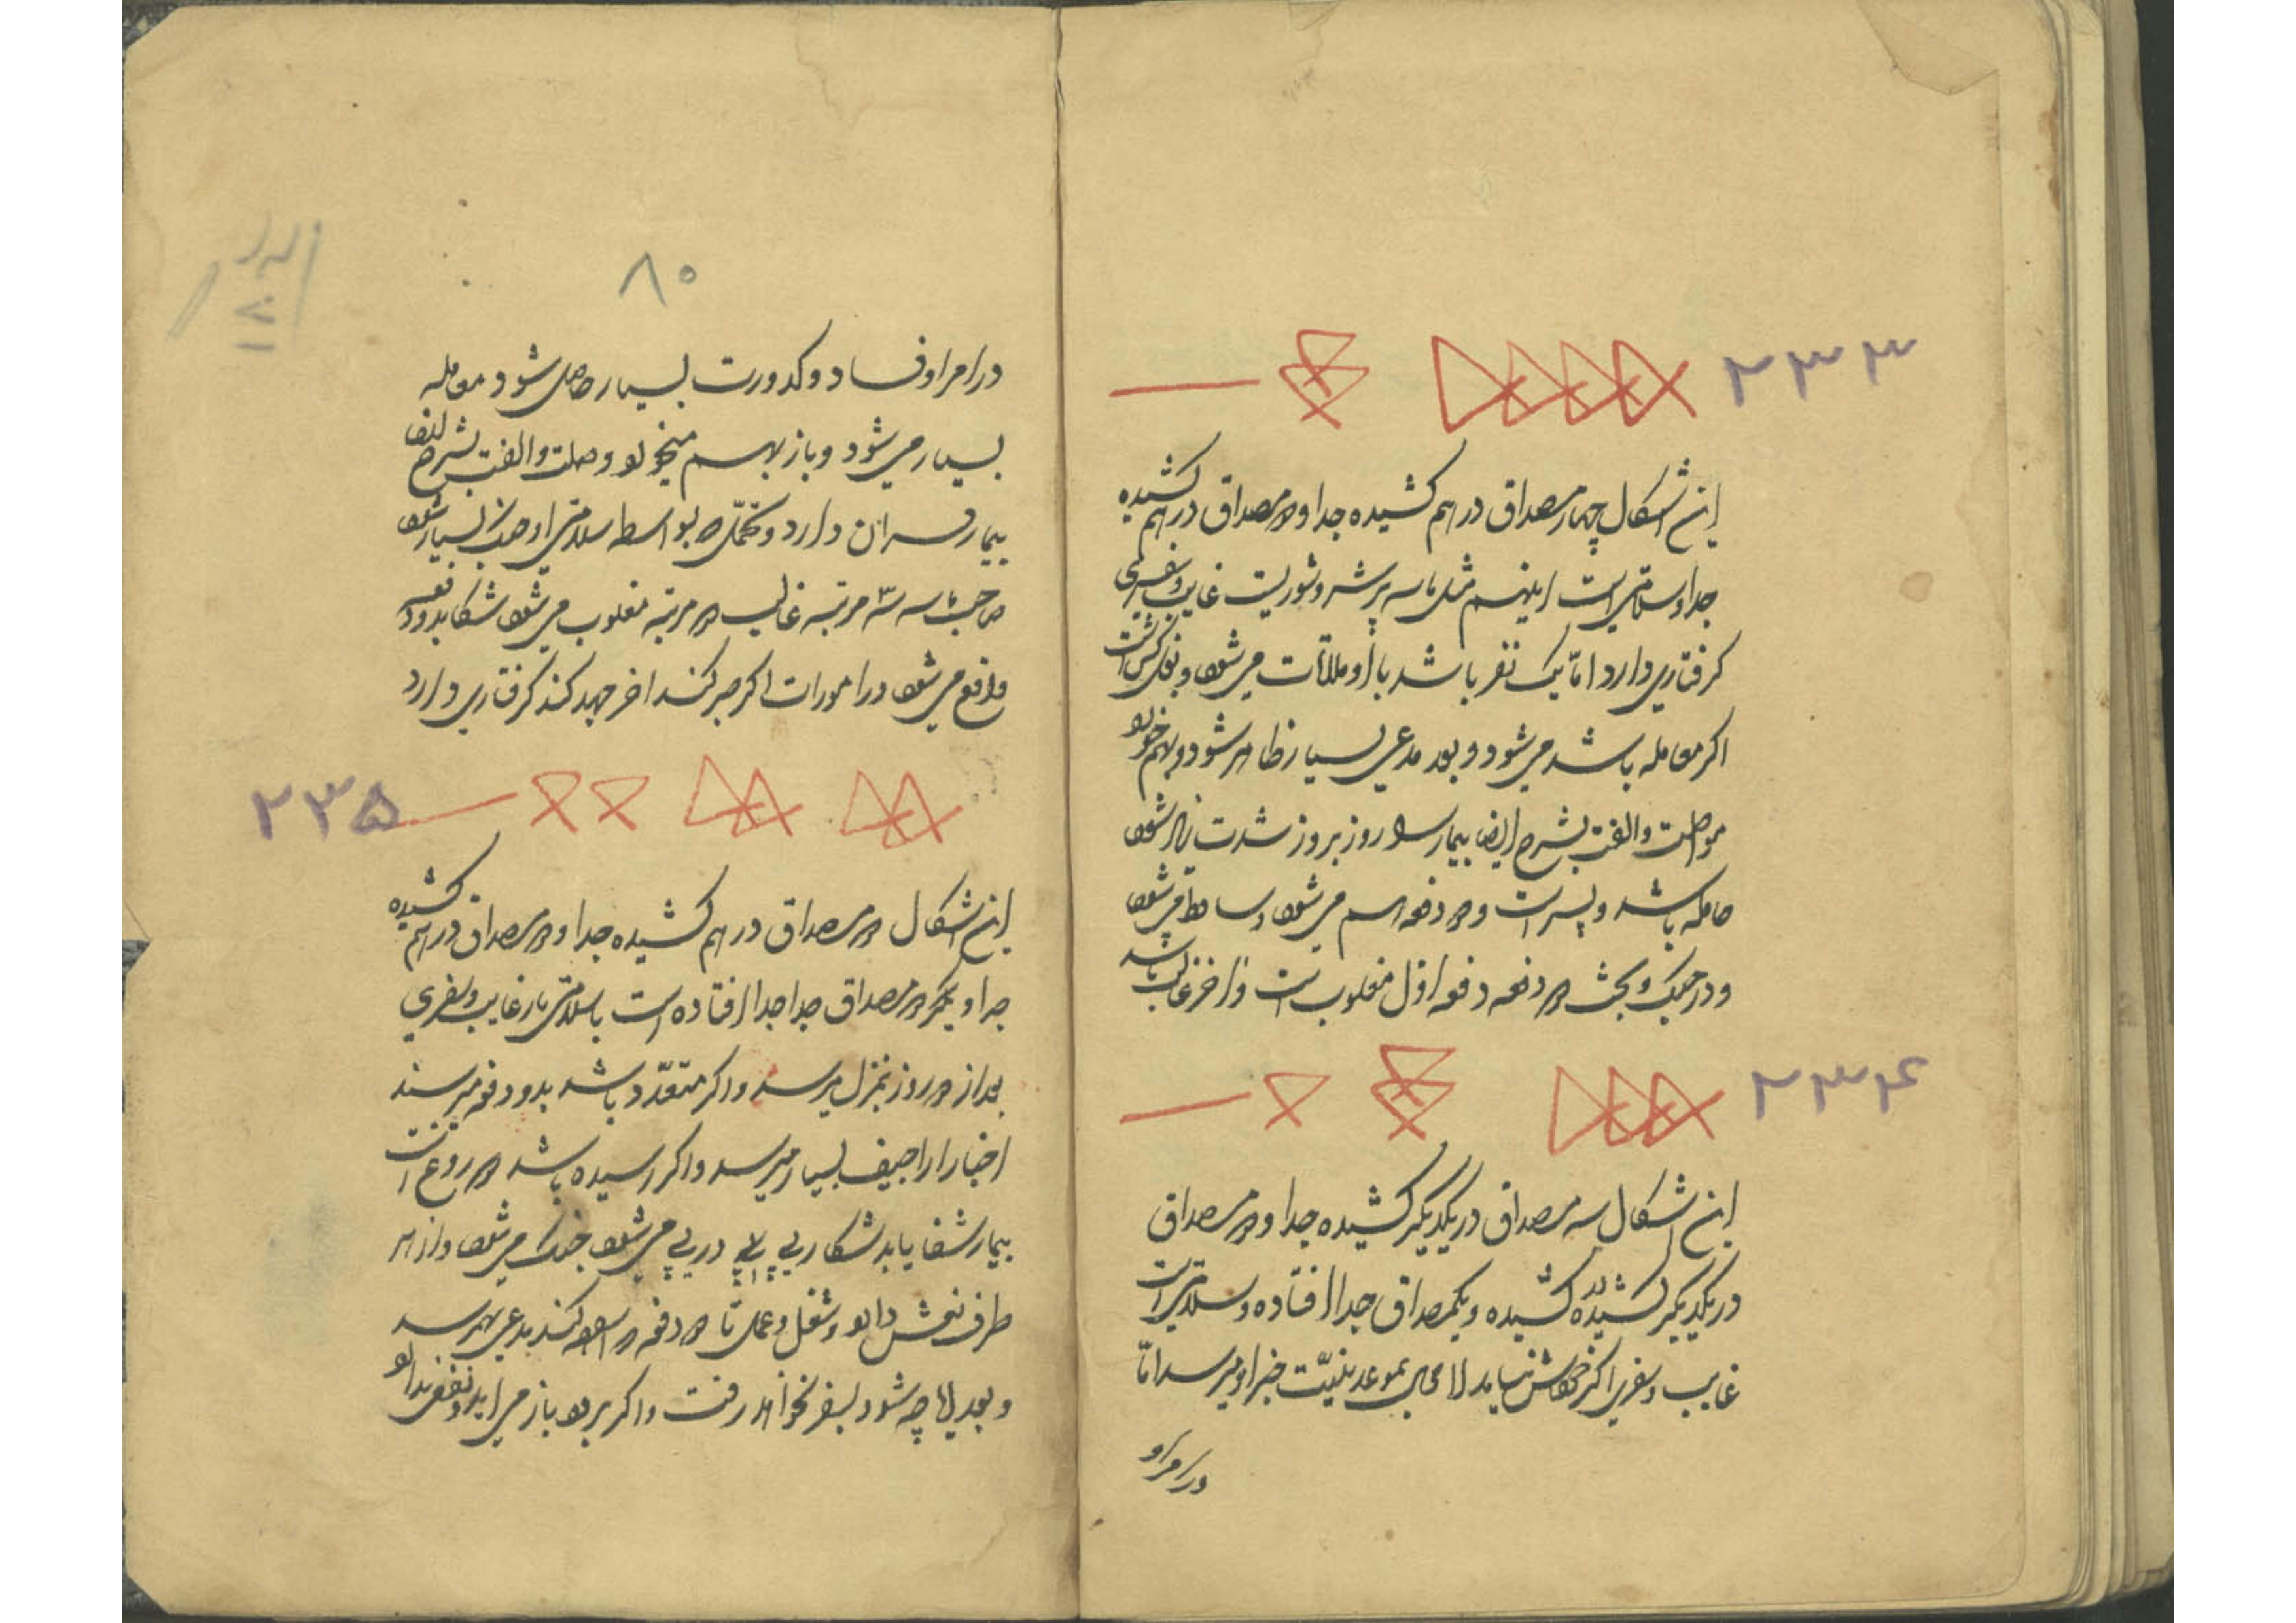 ۲۳۳
این اشکال چهار مصداق در هم کشیده جدا و دو مصداق در هم کشیده
جدا و سلامتی است اینهم مثل تاسه پر شر و شور است غایب و سفری
گرفتاری دارد امّا یک نفر باشد با او ملاقات می شود و
اکر معامله باشد می شود و بعد مدعی بسیار ظاهر شود و بهم خورد
مواصلت و الفت بشرح ایضا بیمار را روز بروز شدت زیاد شود
حامله باشد و پسر است و دو دفعه اسم می شود و ساقط می شود
و در جنک و بحث دو دفعه دفعه اوّل مغلوب است و آخر غالب باشد
۲۳۴
این اشکال سه مصداق در یکدیگر کشیده جدا و دو مصداق
در یکدیگر کشیده کشیده و یکمصداق جدا افتاده و سلامتی است
غایب و سفری اکر خودش نیاید لا محال بموعد بنیّت خبر او میرسد امّا
در امر او
۸۰
در امر او فساد و کدورت بسیار حاصل شود معامله
بسیار می شود و باز بهم میخورد وصلت و الفت بشرح ایضا
بیمار خسران دارد و بواسطه سلامتی او بسیار شود
صاحب تاسه سه مرتبه غالب دو مرتبه مغلوب می شود شکار بدو دفعه
واقع می شود در امورات اکر صبر کند آخر جهد کند گرفتاری دارد
۲۳۵
این اشکال دو مصداق در هم کشیده جدا و دو مصداق در هم کشیده
جدا و یکر دو مصداق جدا جدا افتاده است باسلامتی بار غایب و سفری
بعد از دو روز بمنزل میرسد و اکر متعدّد باشد بدو دفعه میرسند
اخبار اراجیف بسیار میرسد و اکر رسیده باشد دروغ است
بیمار شفا یابد شکار پی پی در پی می شود جنک می شود و از هر
طرف نعش دارد و شغل و عمل تا دو دفعه کند مدعی بهم رسد
و بعد لهاچه شود بسفر نخواهد رفت و اکر برود باز می آید و نفعی ندارد